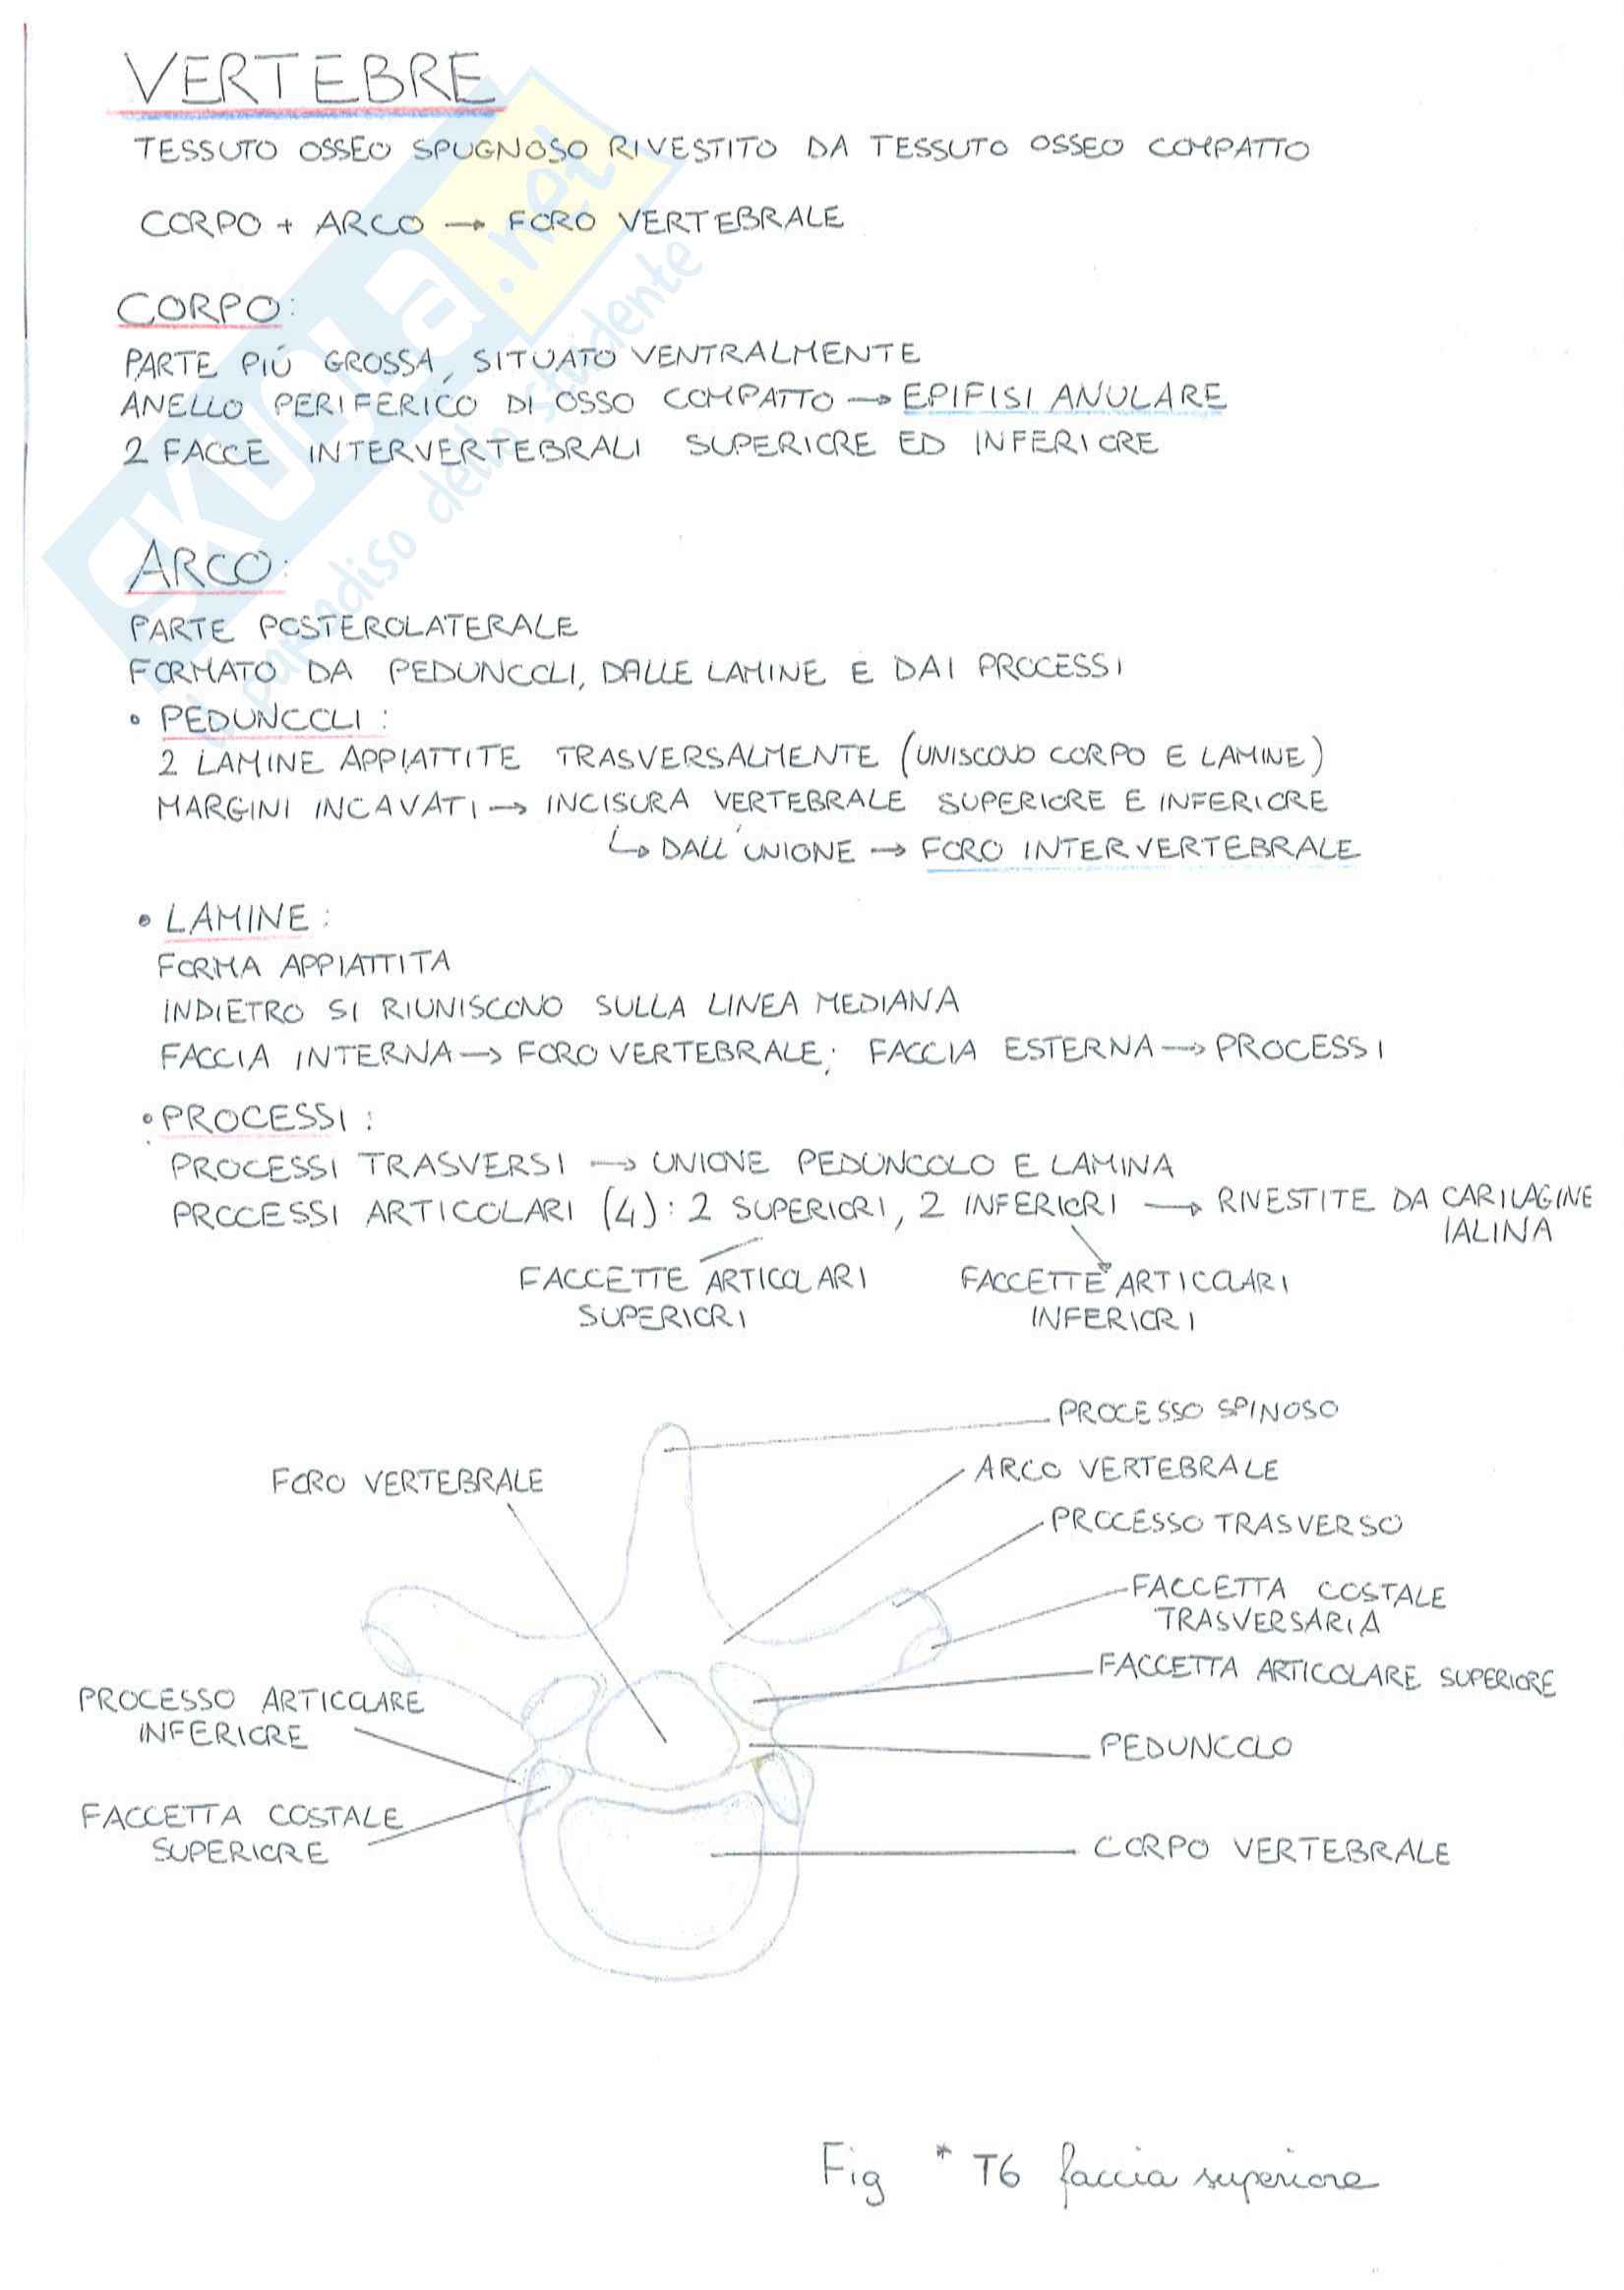 VERTEBRE
TESSUTO OSSEO SPUGNOSO RIVESTITO DA TESSUTO OSSEO COMPATTO
CORPO + ARCO → FORO VERTEBRALE
CORPO:
PARTE PIÚ GROSSA, SITUATO VENTRALMENTE
ANELLO PERIFERICO DI OSSO COMPATTO → EPIFISI ANULARE
2 FACCE INTERVERTEBRALI SUPERIORE ED INFERIORE
ARCO:
PARTE POSTEROLATERALE
FORMATO DA PEDUNCOLI, DALLE LAMINE E DAI PROCESSI
• PEDUNCOLI:
2 LAMINE APPIATTITE TRASVERSALMENTE (UNISCONO CORPO E LAMINE)
MARGINI INCAVATI → INCISURA VERTEBRALE SUPERIORE E INFERIORE
↳ DALL'UNIONE → FORO INTERVERTEBRALE
• LAMINE:
FORMA APPIATTITA
INDIETRO SI RIUNISCONO SULLA LINEA MEDIANA
FACCIA INTERNA → FORO VERTEBRALE; FACCIA ESTERNA → PROCESSI
• PROCESSI:
PROCESSI TRASVERSI → UNIONE PEDUNCOLO E LAMINA
PROCESSI ARTICOLARI (4): 2 SUPERIORI, 2 INFERIORI → RIVESTITE DA CARILAGINE
IALINA
FACCETTE ARTICOLARI
SUPERIORI
FACCETTE ARTICOLARI
INFERIORI
PROCESSO SPINOSO
ARCO VERTEBRALE
FORO VERTEBRALE
PROCESSO TRASVERSO
FACCETTA COSTALE
TRASVERSARIA
FACCETTA ARTICOLARE SUPERIORE
PROCESSO ARTICOLARE
INFERIORE
PEDUNCOLO
FACCETTA COSTALE
SUPERIORE
CORPO VERTEBRALE
Fig * T6 faccia superiore
SKUOLa.net
il paradiso dello studente